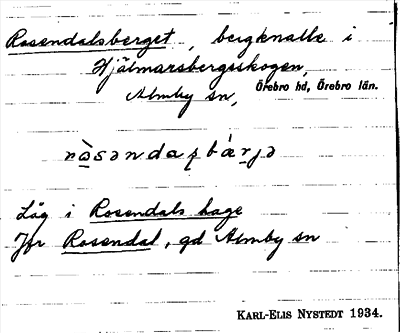 Rosendalsberget, bergknalle i
Hjälmarsbergsskogen,
Almby sn, Örebro hd, Örebro län.
Låg i Rosendals hage
Jfr Rosendal, gd Almby sn
KARL-ELIS NYSTEDT 1934.